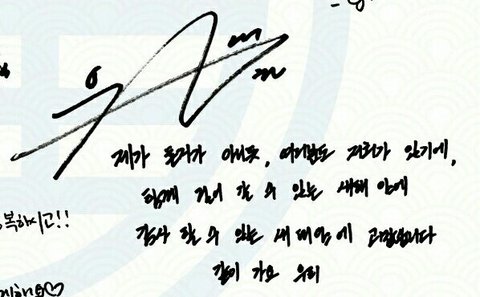 제가 혼자가 아니듯, 여러분도 저희가 있기에,
함께 걸어 갈 수 있는 새해 앞에
감사 할 수 있는 새해임에 감사합니다
같이 가요 우리
복하시고!!
해요♡